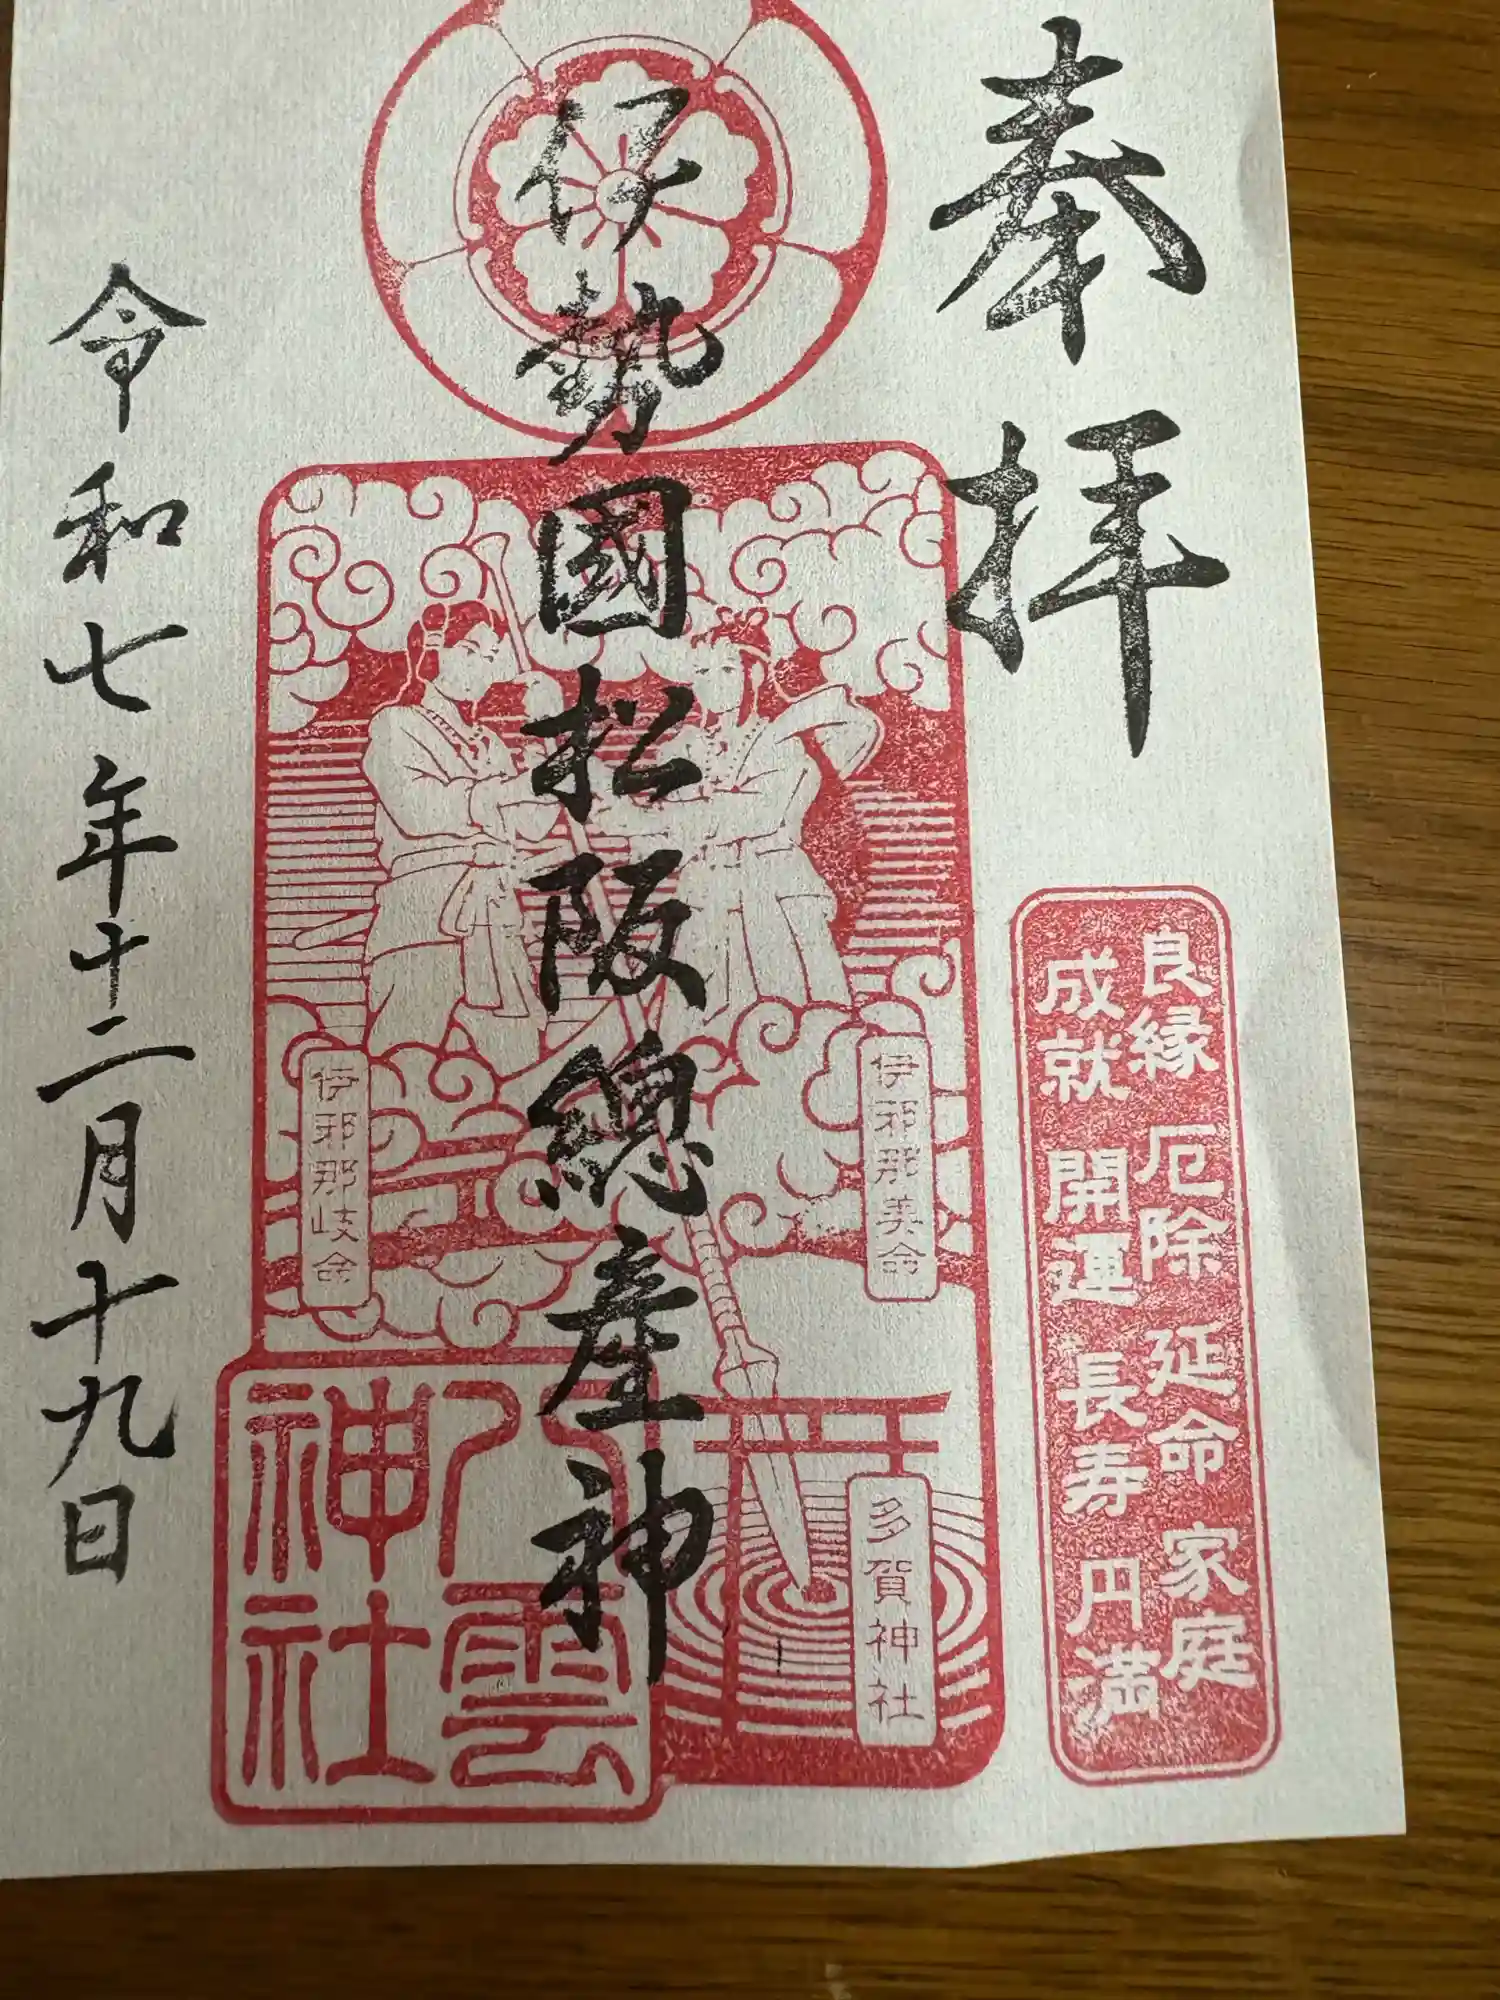 奉拝
良縁 厄除 延命 家庭
成就 開運 長寿 円満
伊勢國松阪總産神
伊邪那美命
伊邪那岐命
多賀神社
八雲
神社
令和七年十二月十九日